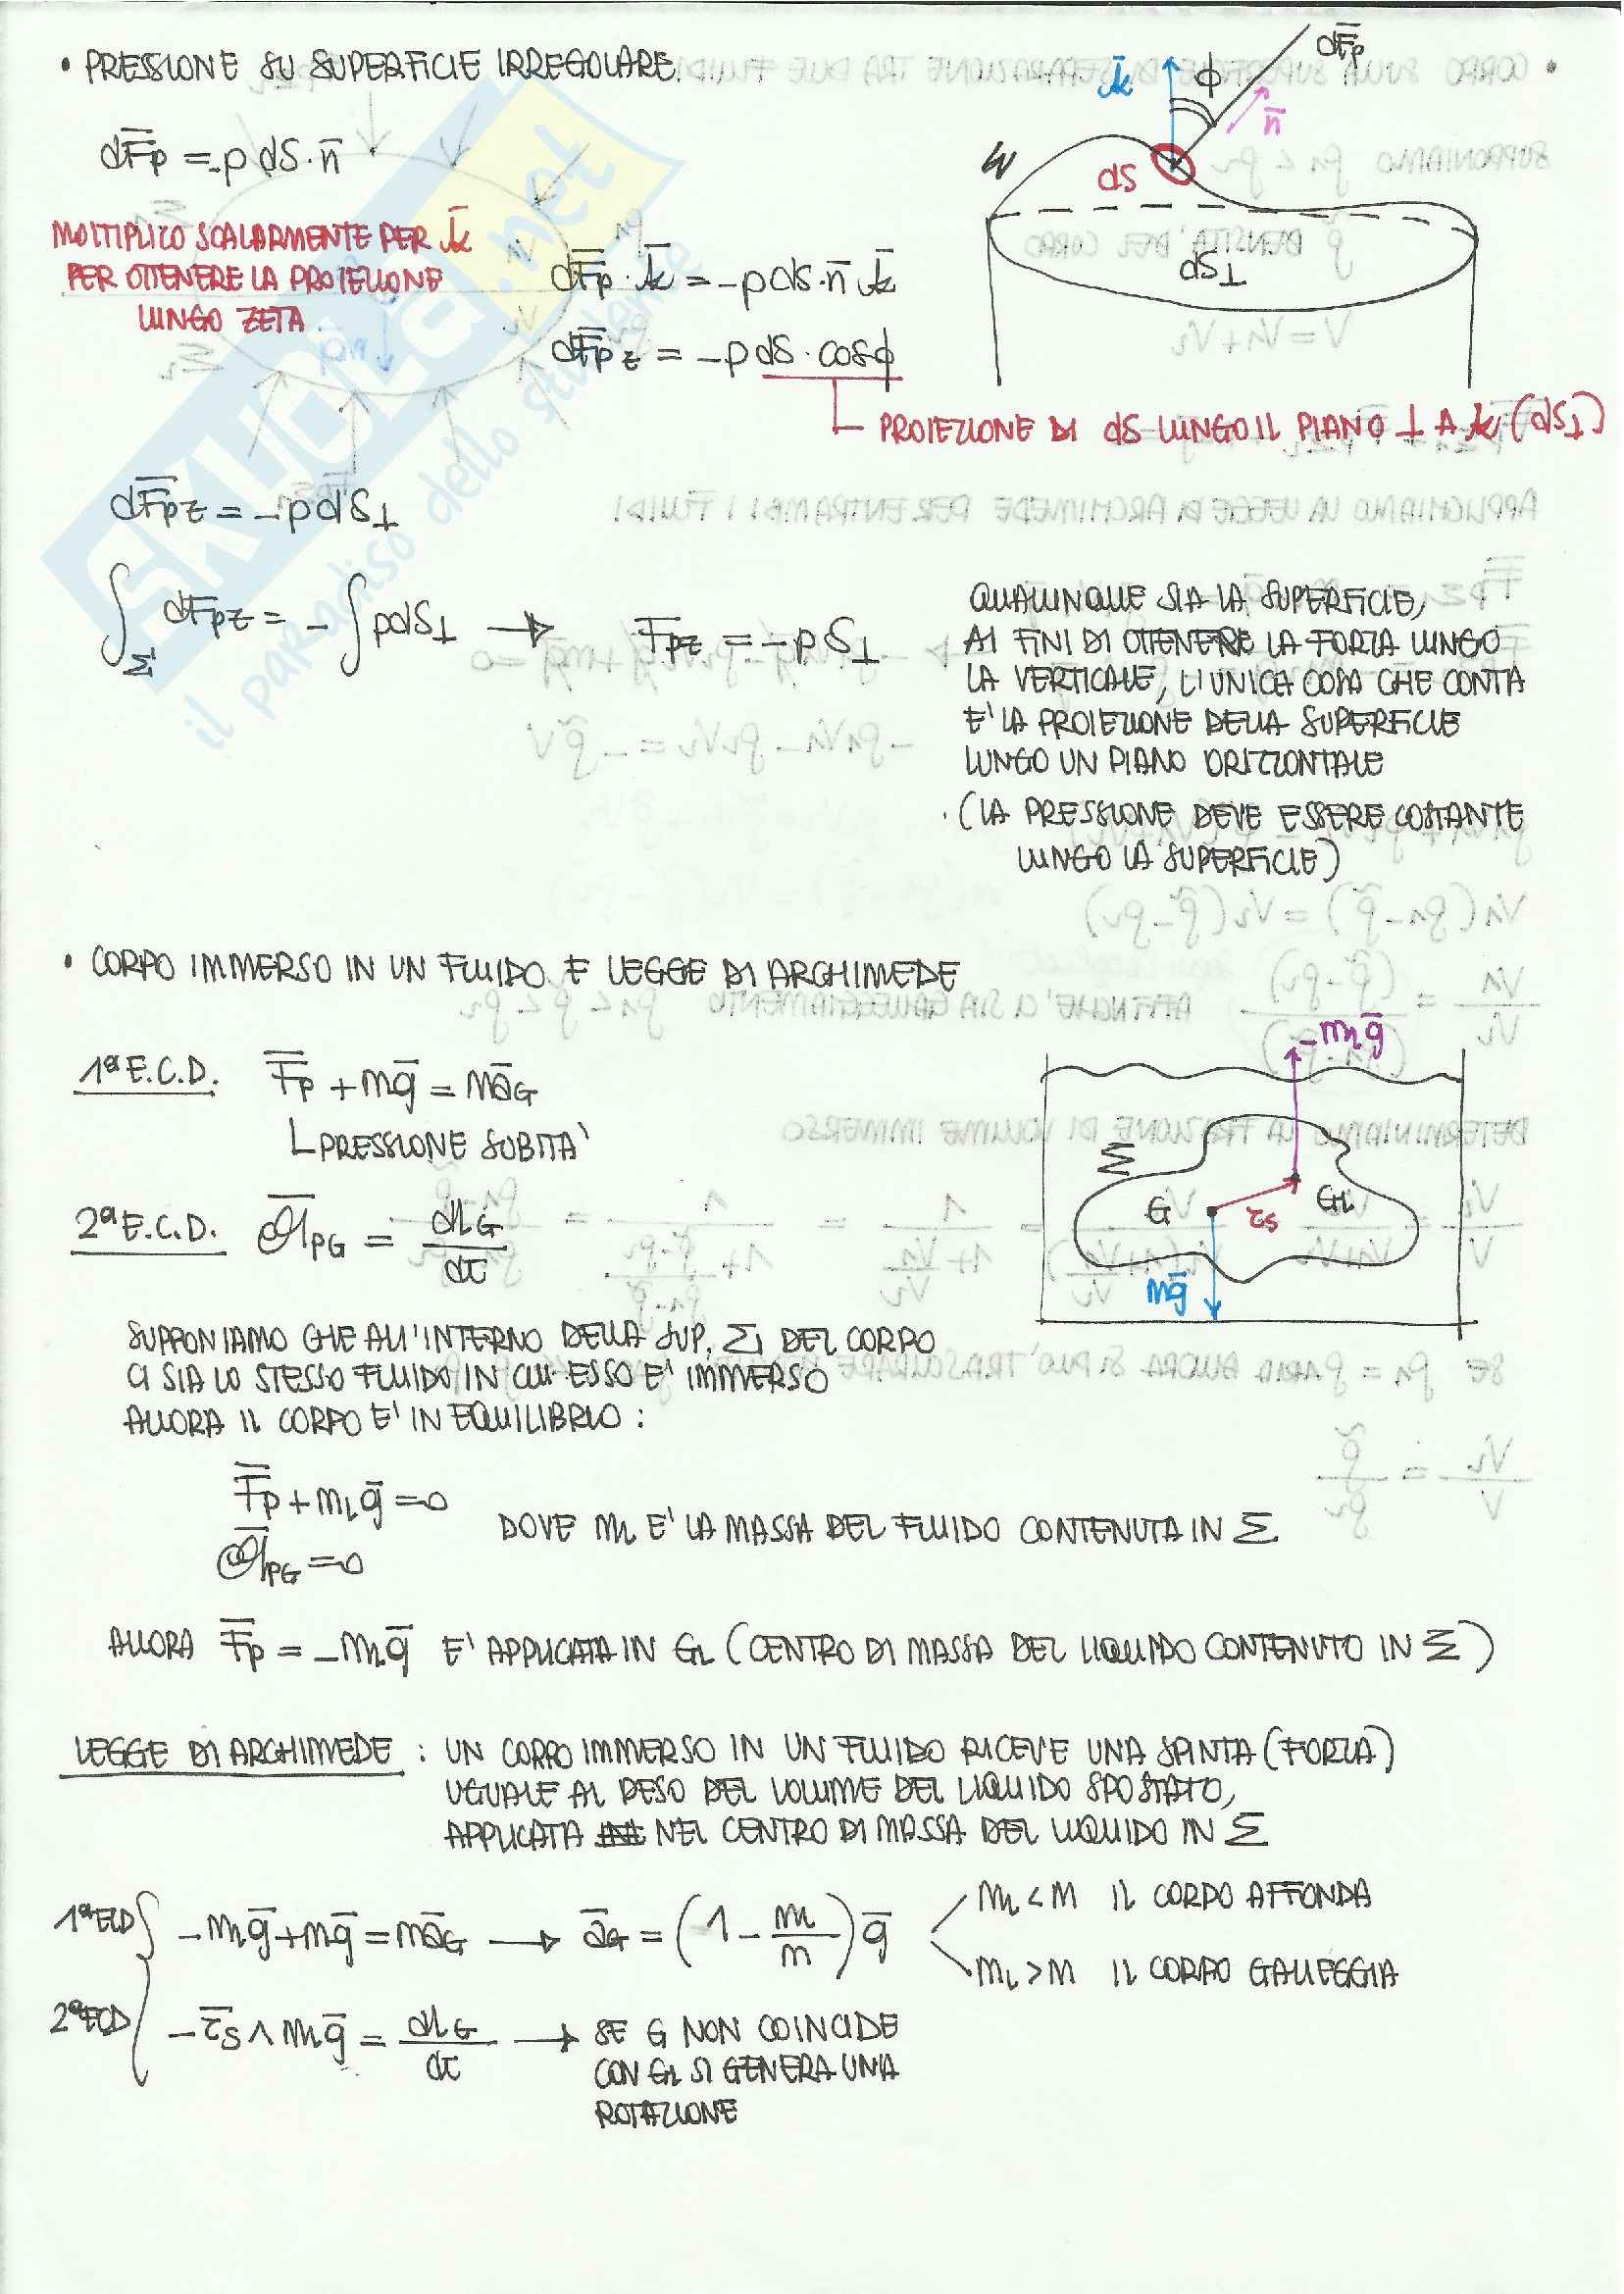 • PRESSIONE SU SUPERFICIE IRREGOLARE.
dF̅p = -p dS · n̅
MOLTIPLICO SCALARMENTE PER k̅
PER OTTENERE LA PROIEZIONE
LUNGO ZETA
dF̅p · k̅ = -p dS · n̅ k̅
dF̅pz = -p dS · cosϕ
PROIEZIONE DI dS LUNGO IL PIANO ⊥ A k̅ (dS⊥)
k̅
ϕ
dF̅p
n̅
dS
dS⊥
dF̅pz = -p dS⊥
∫Σ dFpz = - ∫ p dS⊥ → Fpz = -p S⊥
QUALUNQUE SIA LA SUPERFICIE,
AI FINI DI OTTENERE LA FORZA LUNGO
LA VERTICALE, L'UNICA COSA CHE CONTA
E' LA PROIEZIONE DELLA SUPERFICIE
LUNGO UN PIANO ORIZZONTALE
(LA PRESSIONE DEVE ESSERE COSTANTE
LUNGO LA SUPERFICIE)
• CORPO IMMERSO IN UN FLUIDO E LEGGE DI ARCHIMEDE
1ª E.C.D. F̅p + mg̅ = ma̅G
PRESSIONE SUBITA'
2ª E.C.D. M̅PG = dLG/dt
-mLg̅
Σ
G
GL
rs
mg̅
SUPPONIAMO CHE ALL'INTERNO DELLA SUP. Σ DEL CORPO
CI SIA LO STESSO FLUIDO IN CUI ESSO E' IMMERSO
ALLORA IL CORPO E' IN EQUILIBRIO :
F̅p + mLg̅ = 0
M̅PG = 0
DOVE mL E' LA MASSA DEL FLUIDO CONTENUTA IN Σ
ALLORA F̅p = -mLg̅ E' APPLICATA IN GL (CENTRO DI MASSA DEL LIQUIDO CONTENUTO IN Σ)
LEGGE DI ARCHIMEDE : UN CORPO IMMERSO IN UN FLUIDO RICEVE UNA SPINTA (FORZA)
UGUALE AL PESO DEL VOLUME DEL LIQUIDO SPOSTATO,
APPLICATA NEL CENTRO DI MASSA DEL LIQUIDO IN Σ
1ª ECD { -mLg̅ + mg̅ = ma̅G → a̅G = (1 - mL/m) g̅
mL < m IL CORPO AFFONDA
mL > m IL CORPO GALLEGGIA
2ª ECD { -r̅s ∧ mLg̅ = dLG/dt → SE G NON COINCIDE
CON GL SI GENERA UNA
ROTAZIONE
SKUOLA.net
il paradiso dello studente